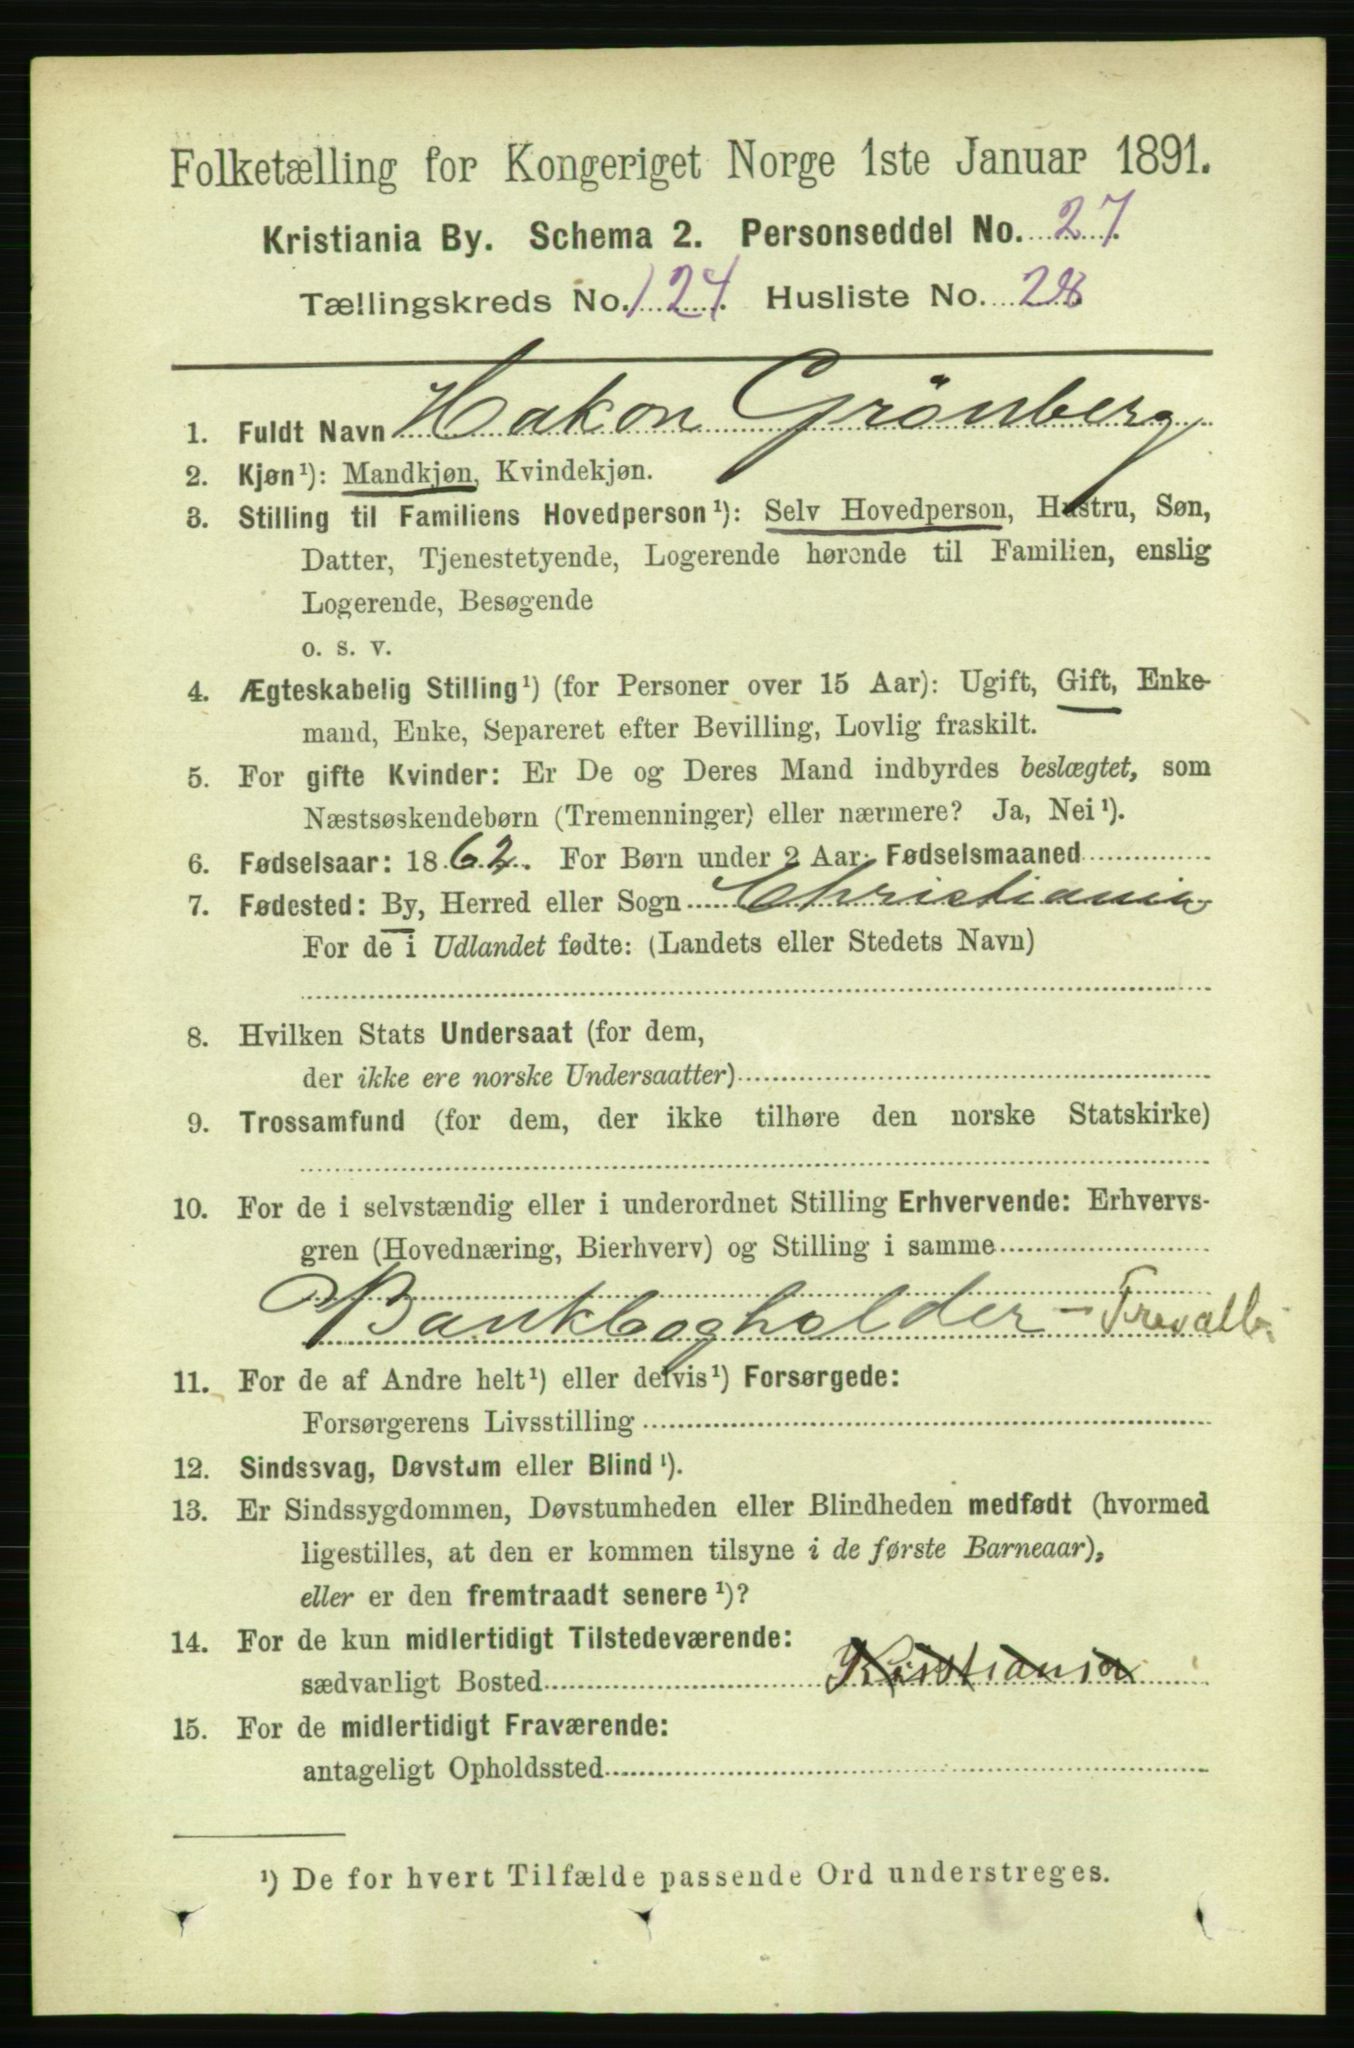 Folketælling for Kongeriget Norge 1ste Januar 1891.
Kristiania By. Schema 2. Personseddel No. 27.
Tællingskreds No. 124. Husliste No. 28
1. Fuldt Navn Hakon Grönberg
2. Kjøn¹): Mandkjøn, Kvindekjøn.
3. Stilling til Familiens Hovedperson¹): Selv Hovedperson, Hustru, Søn,
Datter, Tjenestetyende, Logerende hørende til Familien, enslig
Logerende, Besøgende
o. s. v.
4. Ægteskabelig Stilling¹) (for Personer over 15 Aar): Ugift, Gift, Enke-
mand, Enke, Separeret efter Bevilling, Lovlig fraskilt.
5. For gifte Kvinder: Er De og Deres Mand indbyrdes beslægtet, som
Næstsøskendebørn (Tremenninger) eller nærmere? Ja, Nei¹).
6. Fødselsaar: 1862. For Børn under 2 Aar: Fødselsmaaned
7. Fødested: By, Herred eller Sogn Christiania
For de i Udlandet fødte: (Landets eller Stedets Navn)
8. Hvilken Stats Undersaat (for dem,
der ikke ere norske Undersaatter)
9. Trossamfund (for dem, der ikke tilhøre den norske Statskirke)
10. For de i selvstændig eller i underordnet Stilling Erhvervende: Erhvervs-
gren (Hovednæring, Bierhverv) og Stilling i samme
Bankbogholder -
11. For de af Andre helt¹) eller delvis¹) Forsørgede:
Forsørgerens Livsstilling
12. Sindssvag, Døvstum eller Blind¹).
13. Er Sindssygdommen, Døvstumheden eller Blindheden medfødt (hvormed
ligestilles, at den er kommen tilsyne i de første Barneaar),
eller er den fremtraadt senere¹)?
14. For de kun midlertidigt Tilstedeværende:
sædvanligt Bosted Kristiania
15. For de midlertidigt Fraværende:
antageligt Opholdssted
¹) De for hvert Tilfælde passende Ord understreges.